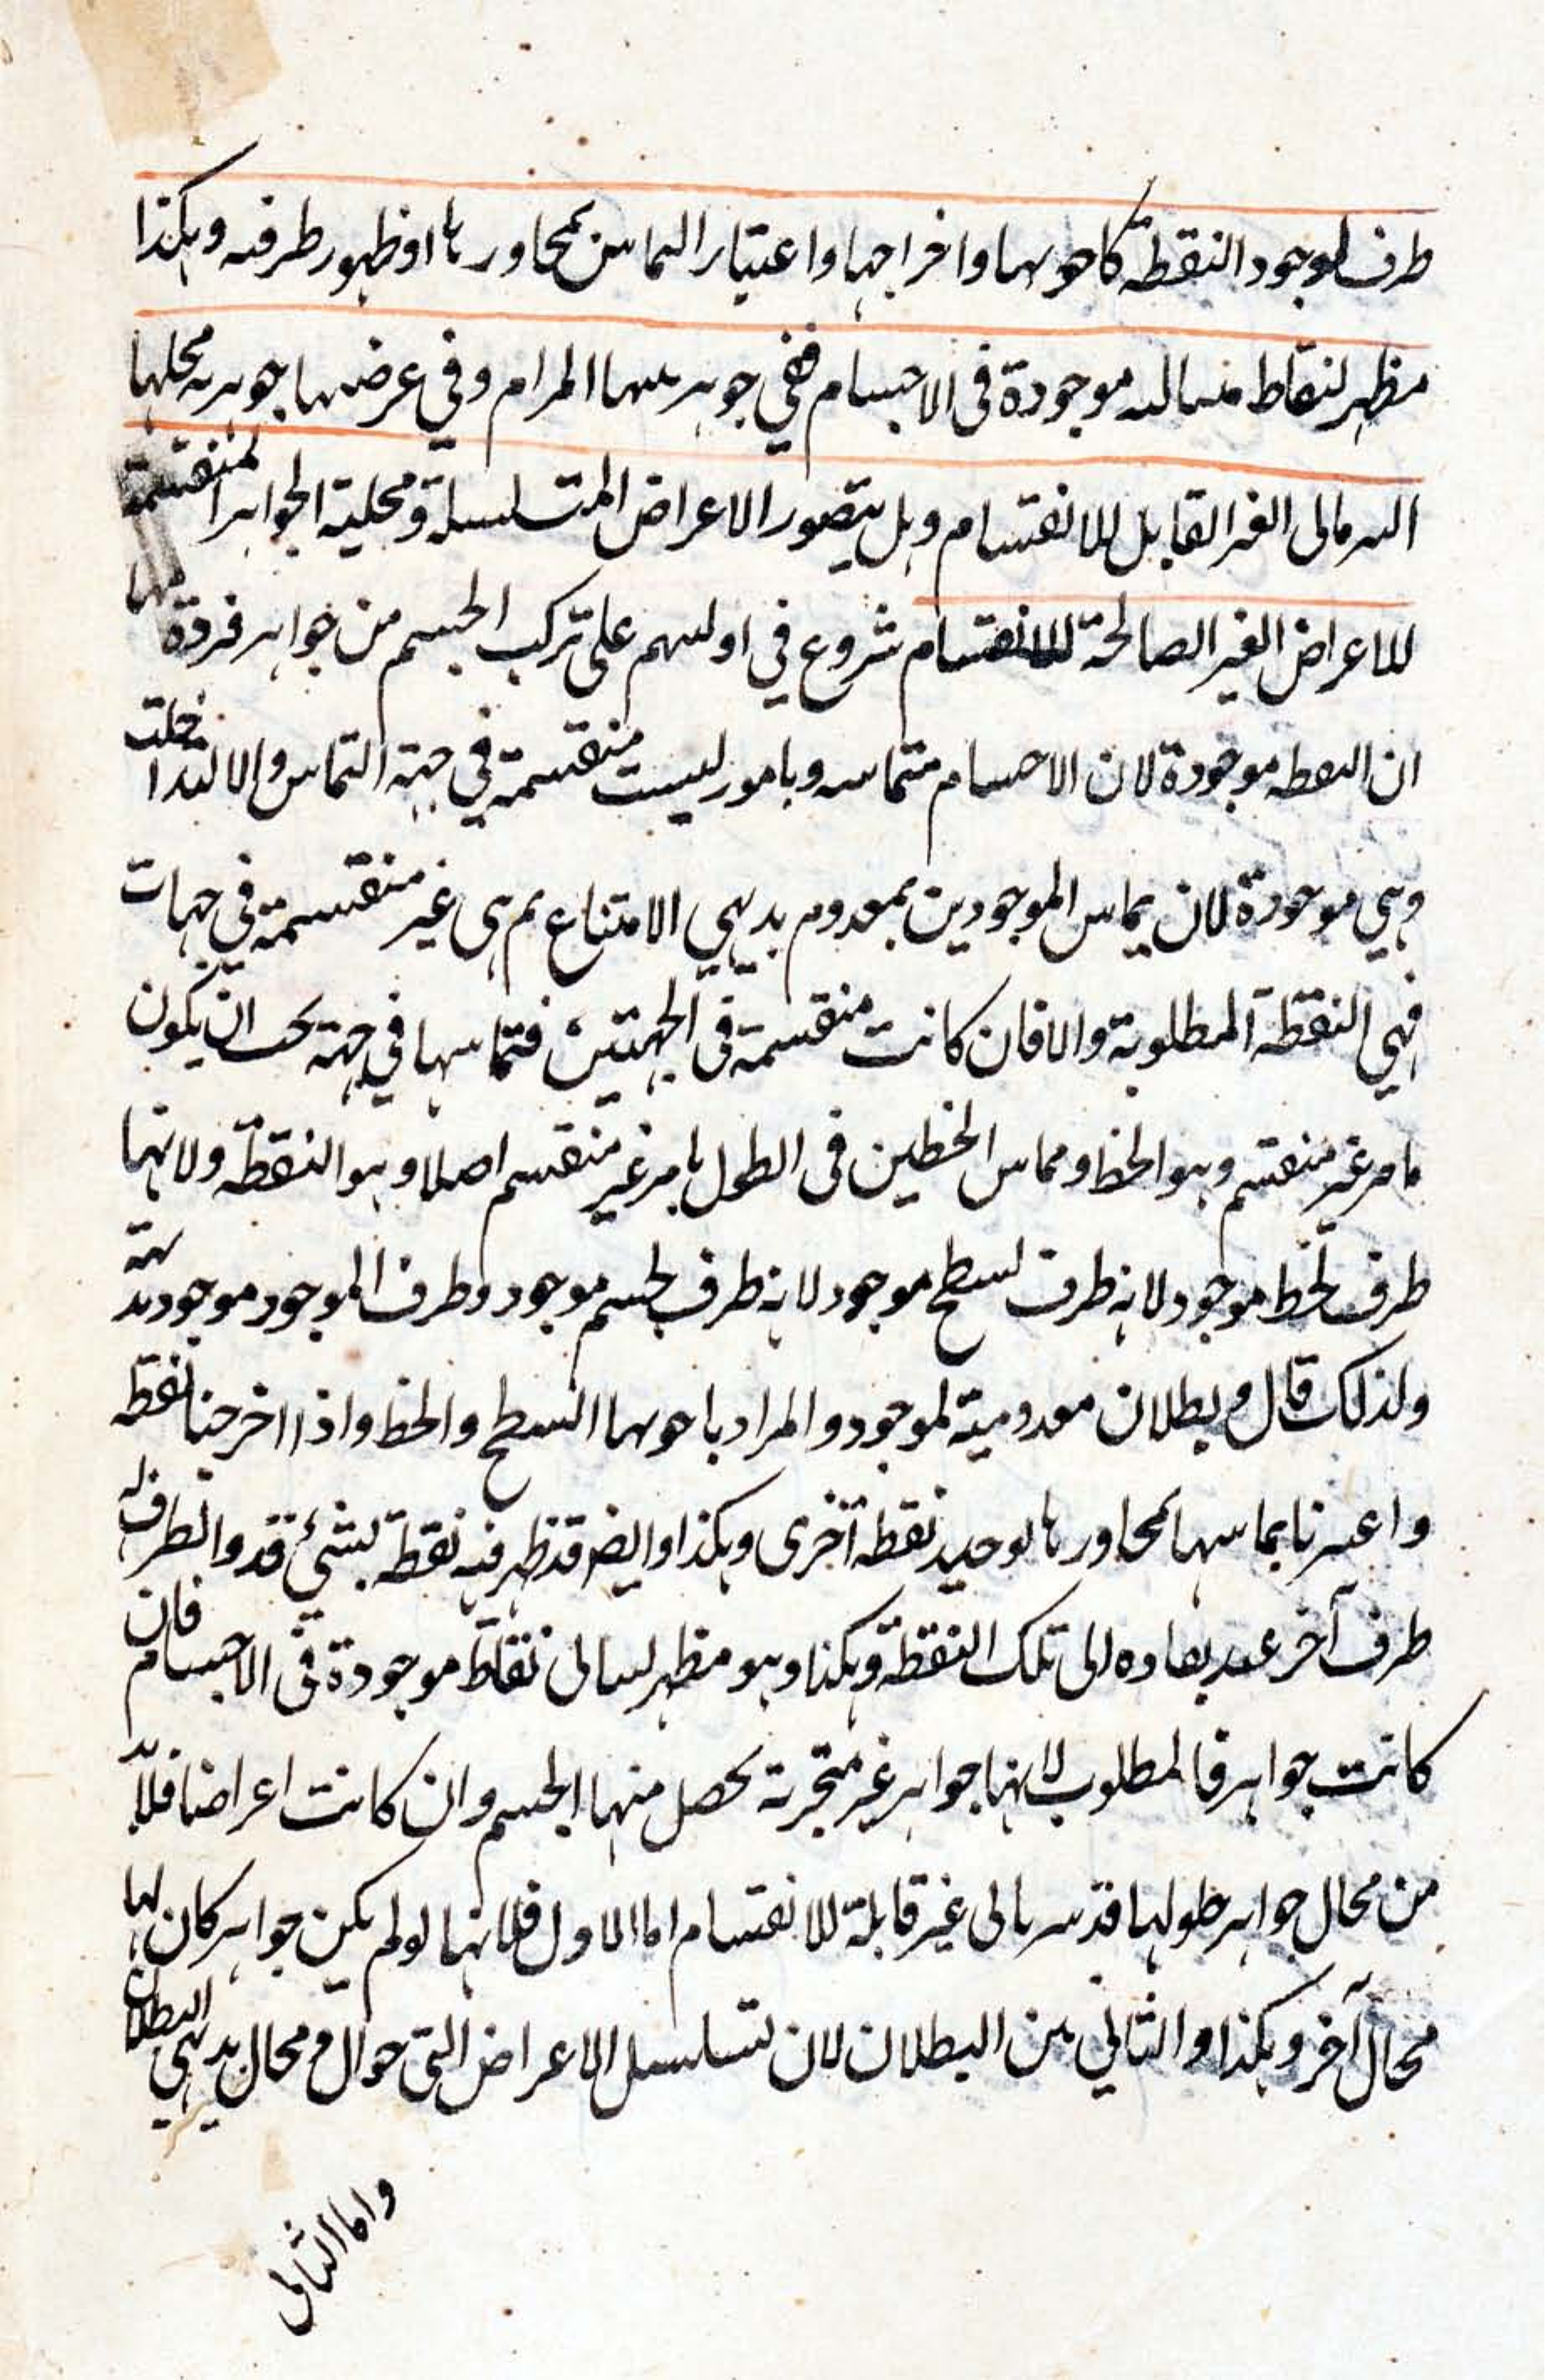 طرف لموجود النقطة كاحويها واخراجها واعتبار التماس بمجاورها او ظهور طرفيه وهكذا
مظهر لنقاط متتالية موجودة في الاجسام ففي جوهريتها المرام وفي عرضيتها جوهرية محلها
السرياني الغير القابل للانقسام وهل يتصور الاعراض المتسلسلة ومحلية الجواهر المنقسمة
للاعراض الغير الصالحة للانقسام شروع في ادلتهم على تركب الجسم من جواهر فردة منها
ان النقطة موجودة لان الاجسام متماسة وبامور ليست منقسمة في جهة التماس والا لتداخلت
وهي موجودة لان تماس الموجودين بمعدوم بديهي الامتناع ثم هي غير منقسمة في جهات
فهي النقطة المطلوبة والا فان كانت منقسمة في الجهتين فتماسها في جهة يجب ان يكون
بامر غير منقسم وهو الخط ومماس الخطين في الطول بامر غير منقسم اصلا وهو النقطة ولانها
طرف لخط موجود لانه طرف لسطح موجود لانه طرف لجسم موجود وطرف الموجود موجود بديهة
ولذلك قال وبطلان معدومية لموجود والمراد باحويها السطح والخط واذا اخرجنا نقطة
واعتبرنا تماسها بمجاورها توجد نقطة اخرى وهكذا وايضا قد ظهر فيه نقطة لشيء قد والطرف له
طرف آخر عند الى تلك النقطة وهكذا وهو مظهر لتتالي نقاط موجودة في الاجسام فان
كانت جواهر فالمطلوب لانها جواهر غير متجزية تحصل منها الجسم وان كانت اعراضا فلا بد
من محال جواهر حلولها فيه سرياني غير قابلة للانقسام اما الاول فلانها لو لم يكن جواهر كان لها
محال آخر وهكذا والتالي بين البطلان لان تسلسل الاعراض التي حوال ومحال بديهي البطلان
واما الثاني